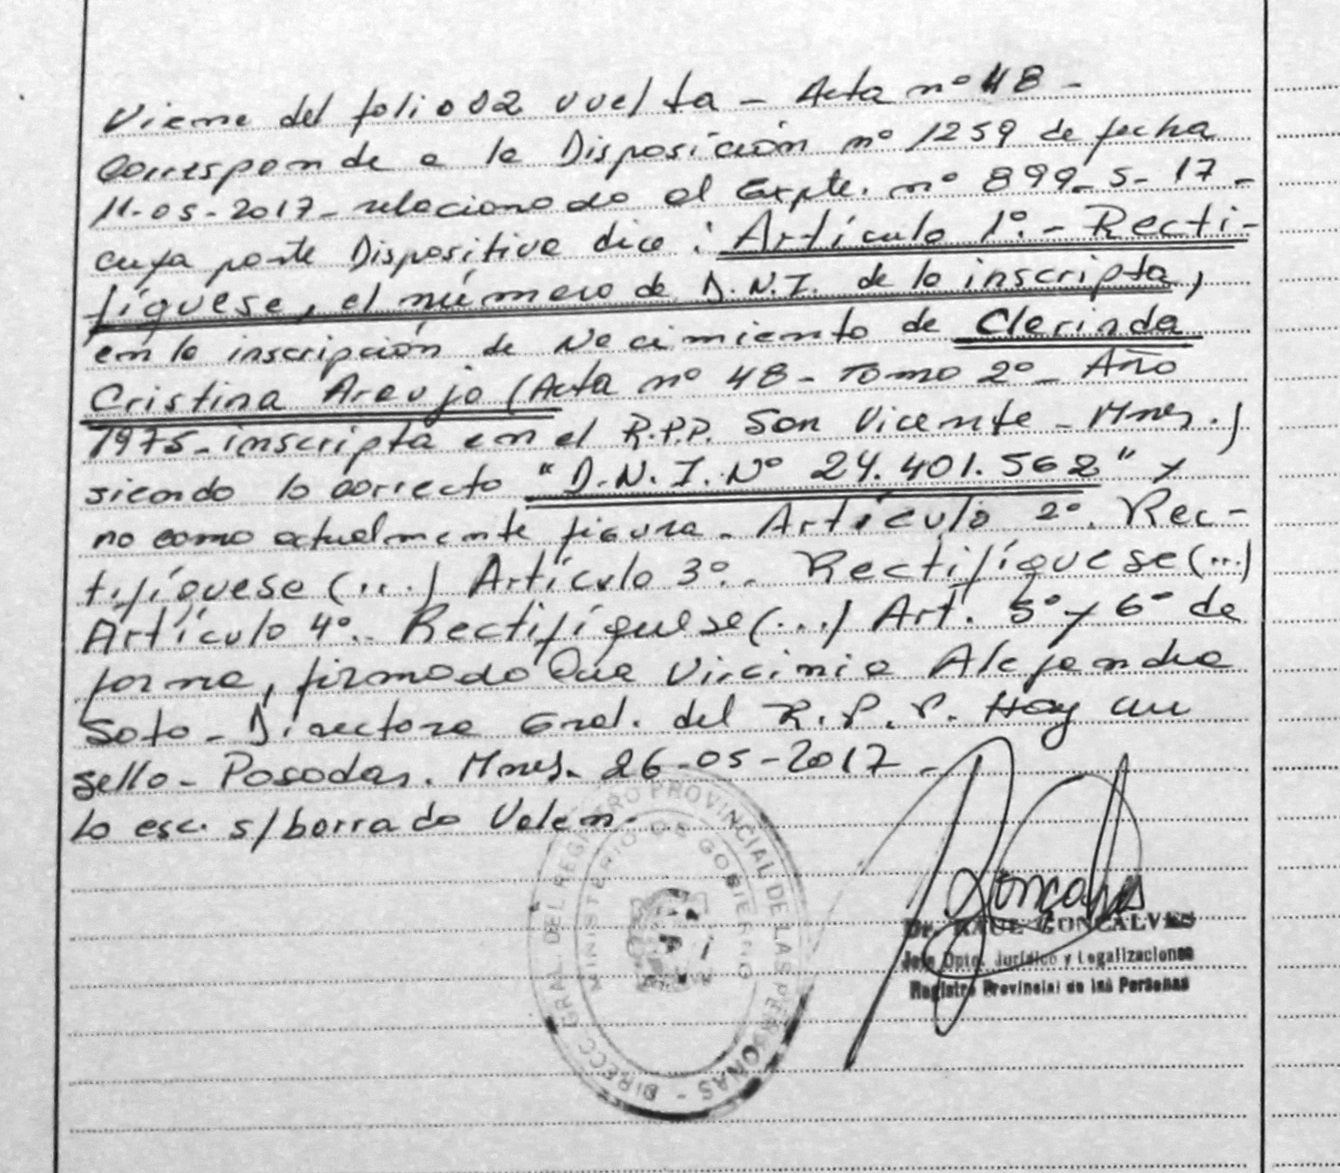 Viene del folio 02 vuelta - Acta nº 48 -
Corresponde a la Disposición nº 1259 de fecha
11-05-2017- relacionado al Expte. nº 899-S-17-
cuya parte Dispositiva dice: Artículo 1º.- Recti-
fíquese, el número de D.N.I. de la inscripta,
en la inscripción de Nacimiento de Clerinda
Cristina Araujo (Acta nº 48 - Tomo 2º - Año
1975-inscripta en el R.P.P. San Vicente - Mnes.)
siendo lo correcto "D.N.I. Nº 24.401.562" y
no como actualmente figura. Artículo 2º. Rec-
tifíquese (...) Artículo 3º.- Rectifíquese (...)
Artículo 4º.- Rectifíquese (...) Art. 5º y 6º de
forma, firmado Dra Virginia Alejandra
Soto - Directora Gral. del R.P.P. Hay un
sello - Posadas. Mnes. 26-05-2017 -
Lo esc. s/borrado Valen.
DIRECC. GRAL. DEL REGISTRO PROVINCIAL DE LAS PERSONAS -
MINISTERIO DE GOBIERNO
Goncalves
Dr. RAUL GONCALVES
Jefe Dpto. Jurídico y Legalizaciones
Registro Provincial de las Personas